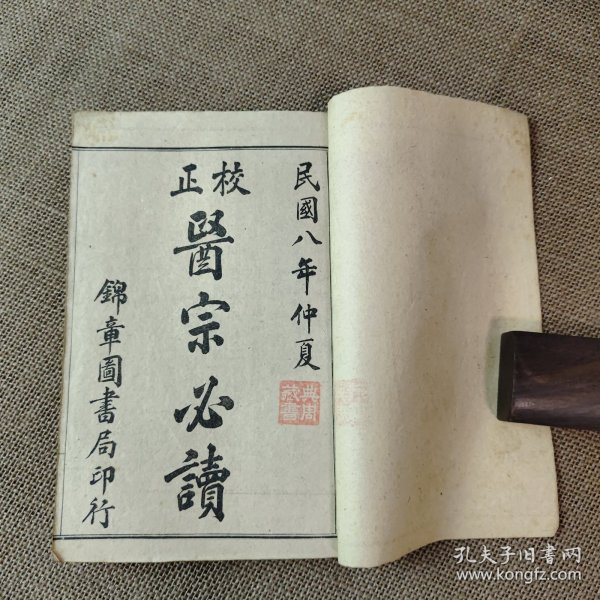 民國八年仲夏
校正
醫宗必讀
錦章圖書局印行
孔夫子旧书网
www.kongfz.com